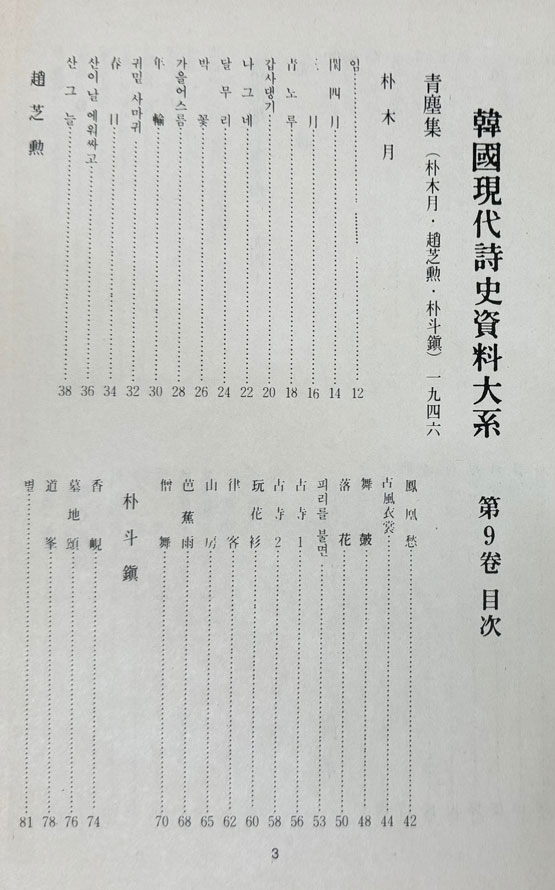 韓國現代詩史資料大系 第9卷 目次
青塵集 (朴木月・趙芝勳・朴斗鎭) 一九四六
朴木月
임 12
閏四月 14
三月 16
青노루 18
갑사댕기 20
나그네 22
달무리 24
박꽃 26
가을어스름 28
年輪 30
귀밑 사마귀 32
春日 34
산이 날 에워싸고 36
산그늘 38
趙芝勳
鳳凰愁 42
古風衣裳 44
舞鼓 48
落花 50
피리를 불면 53
古寺 1 56
古寺 2 58
玩花衫 60
律客 62
山房 65
芭蕉雨 68
僧舞 70
朴斗鎭
香峴 74
墓地頌 76
道峯 78
별 81
3